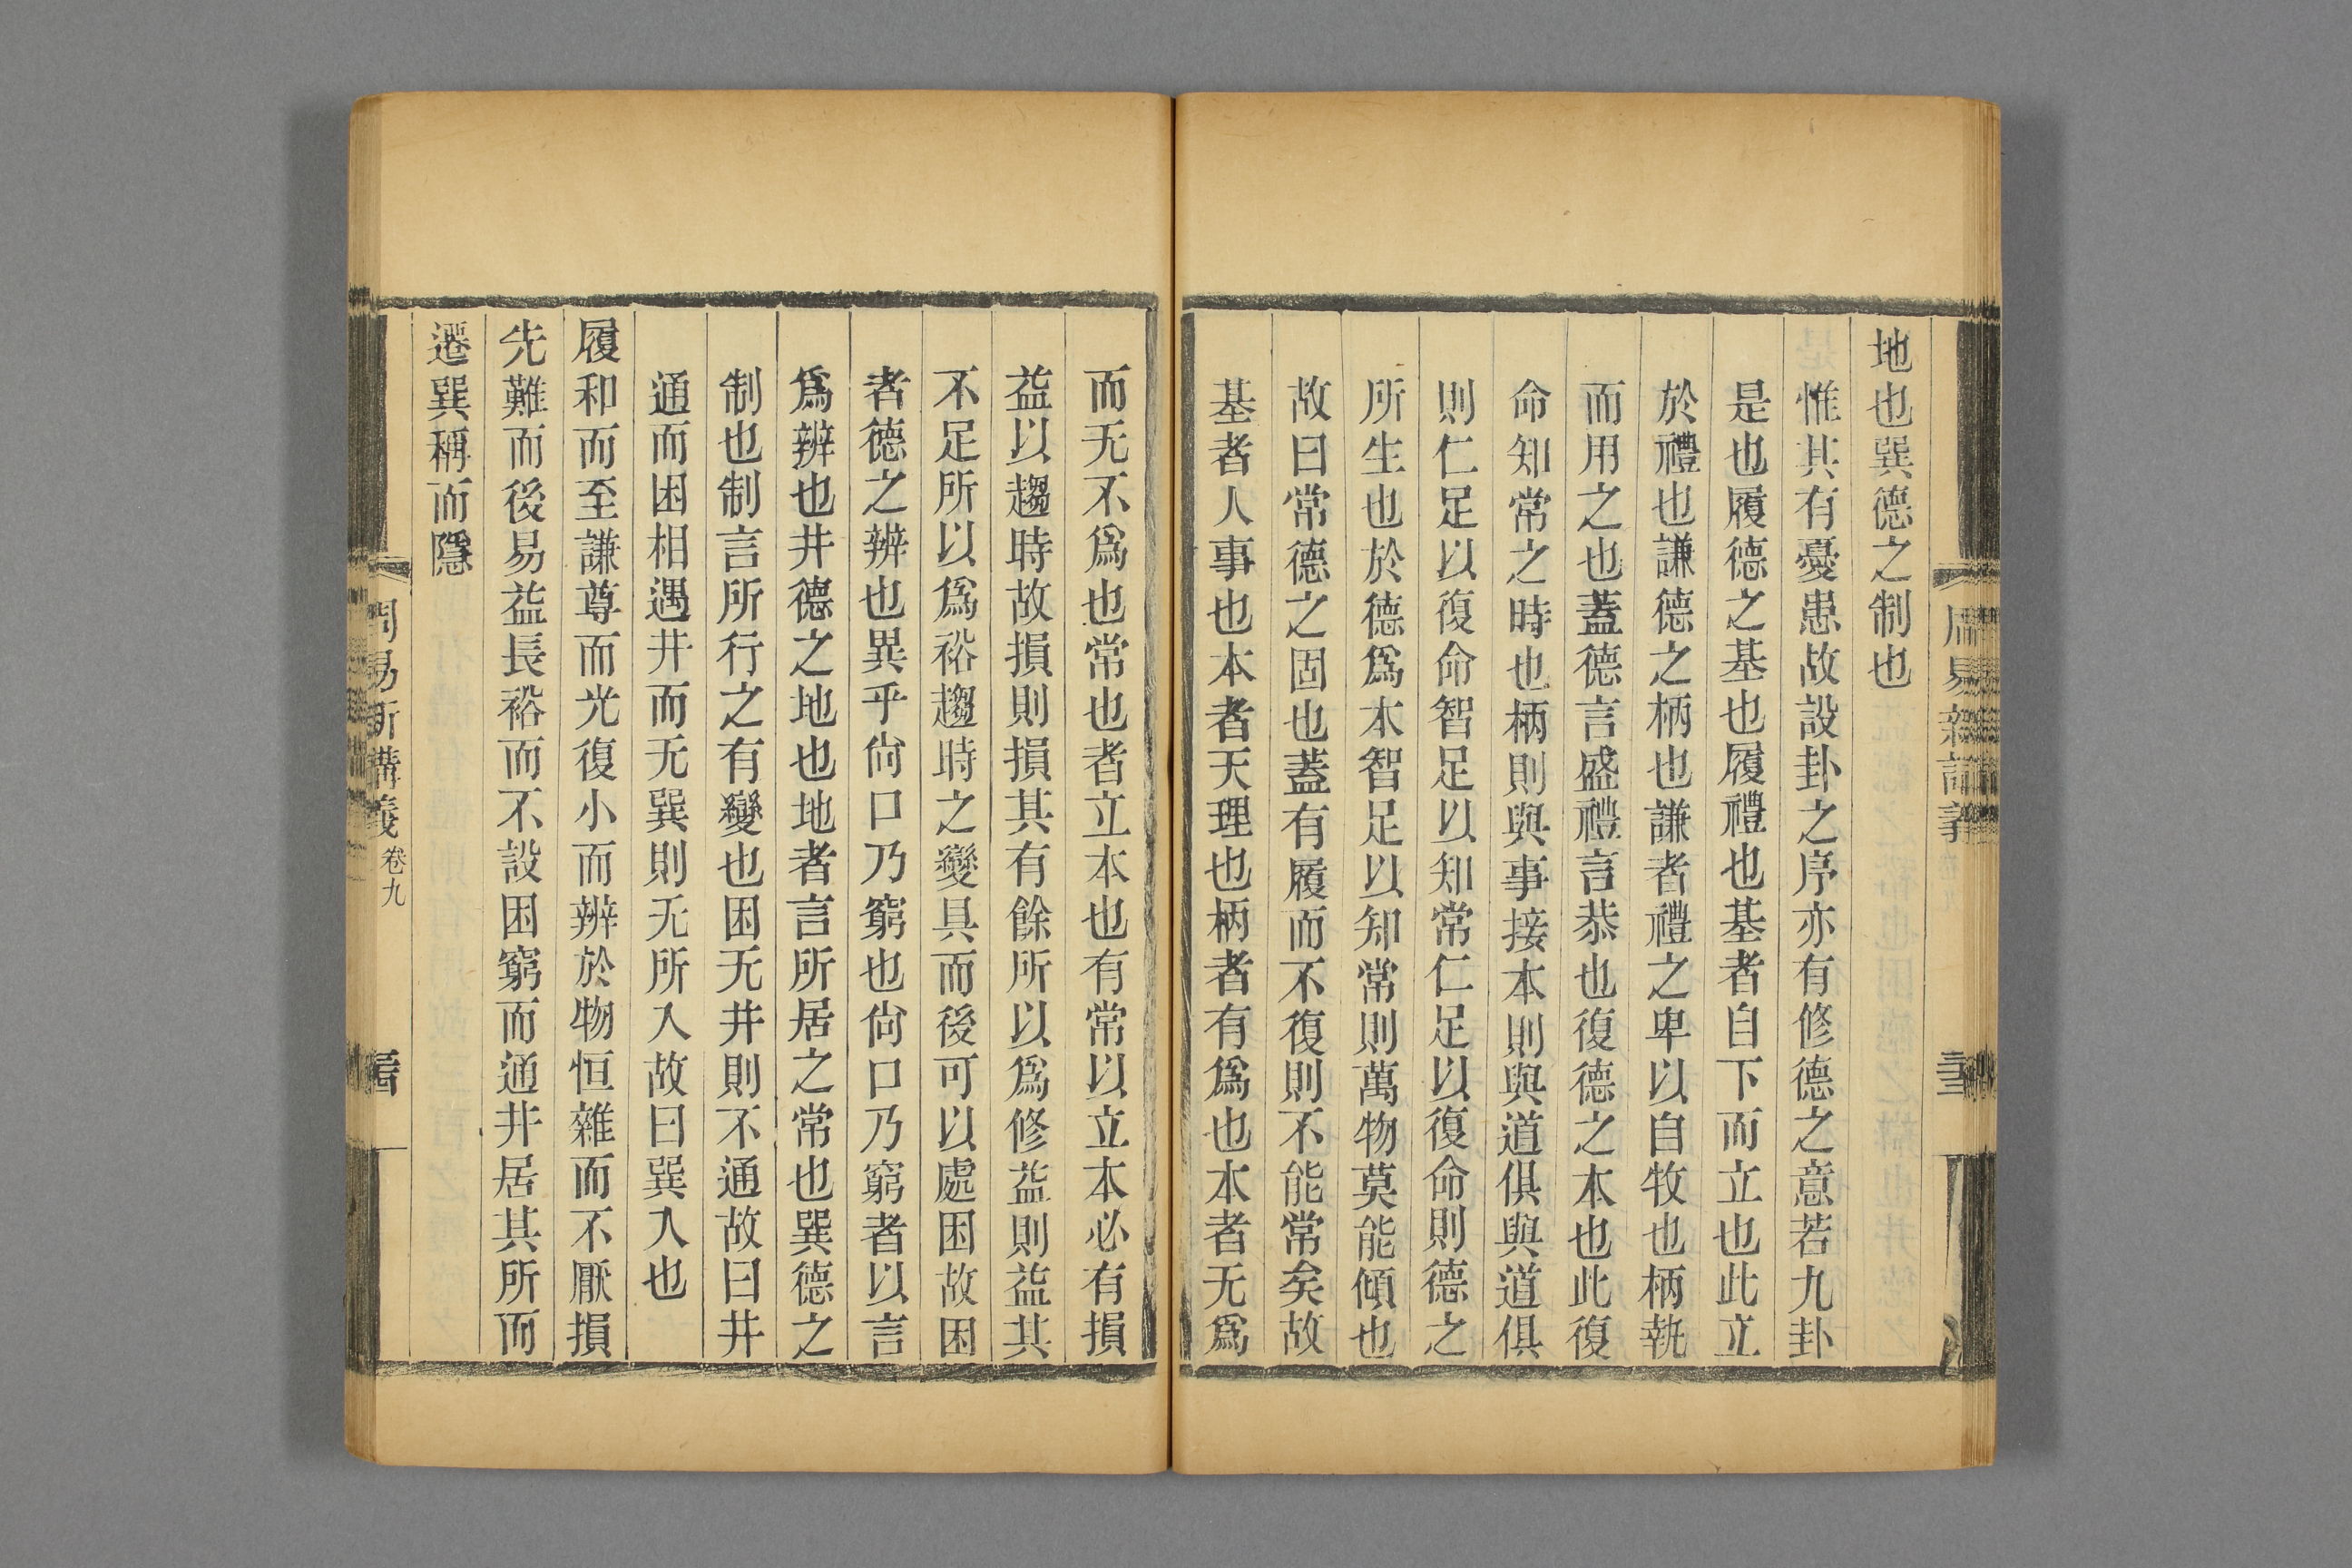 地也巽德之制也
惟其有憂患故設卦之序亦有修德之意若九卦
是也履德之基也履禮也基者自下而立也此立
於禮也謙德之柄也謙者禮之卑以自牧也柄執
而用之也蓋德言盛禮言恭也復德之本也此復
命知常之時也柄則與事接本則與道俱與道俱
則仁足以復命智足以知常仁足以復命則德之
所生也於德爲本智足以知常則萬物莫能傾也
故曰常德之固也蓋有履而不復則不能常矣故
基者人事也本者天理也柄者有爲也本者无爲
而无不爲也常也者立本也有常以立本必有損
益以趨時故損則損其有餘所以爲修益則益其
不足所以爲裕趨時之變具而後可以處困故困
者德之辨也異乎尙口乃窮也尙口乃窮者以言
爲辨也井德之地也地者言所居之常也巽德之
制也制言所行之有變也困无井則不通故曰井
通而困相遇井而无巽則无所入故曰巽入也
履和而至謙尊而光復小而辨於物恒雜而不厭損
先難而後易益長裕而不設困窮而通井居其所而
遷巽稱而隱
周易新講義 卷九